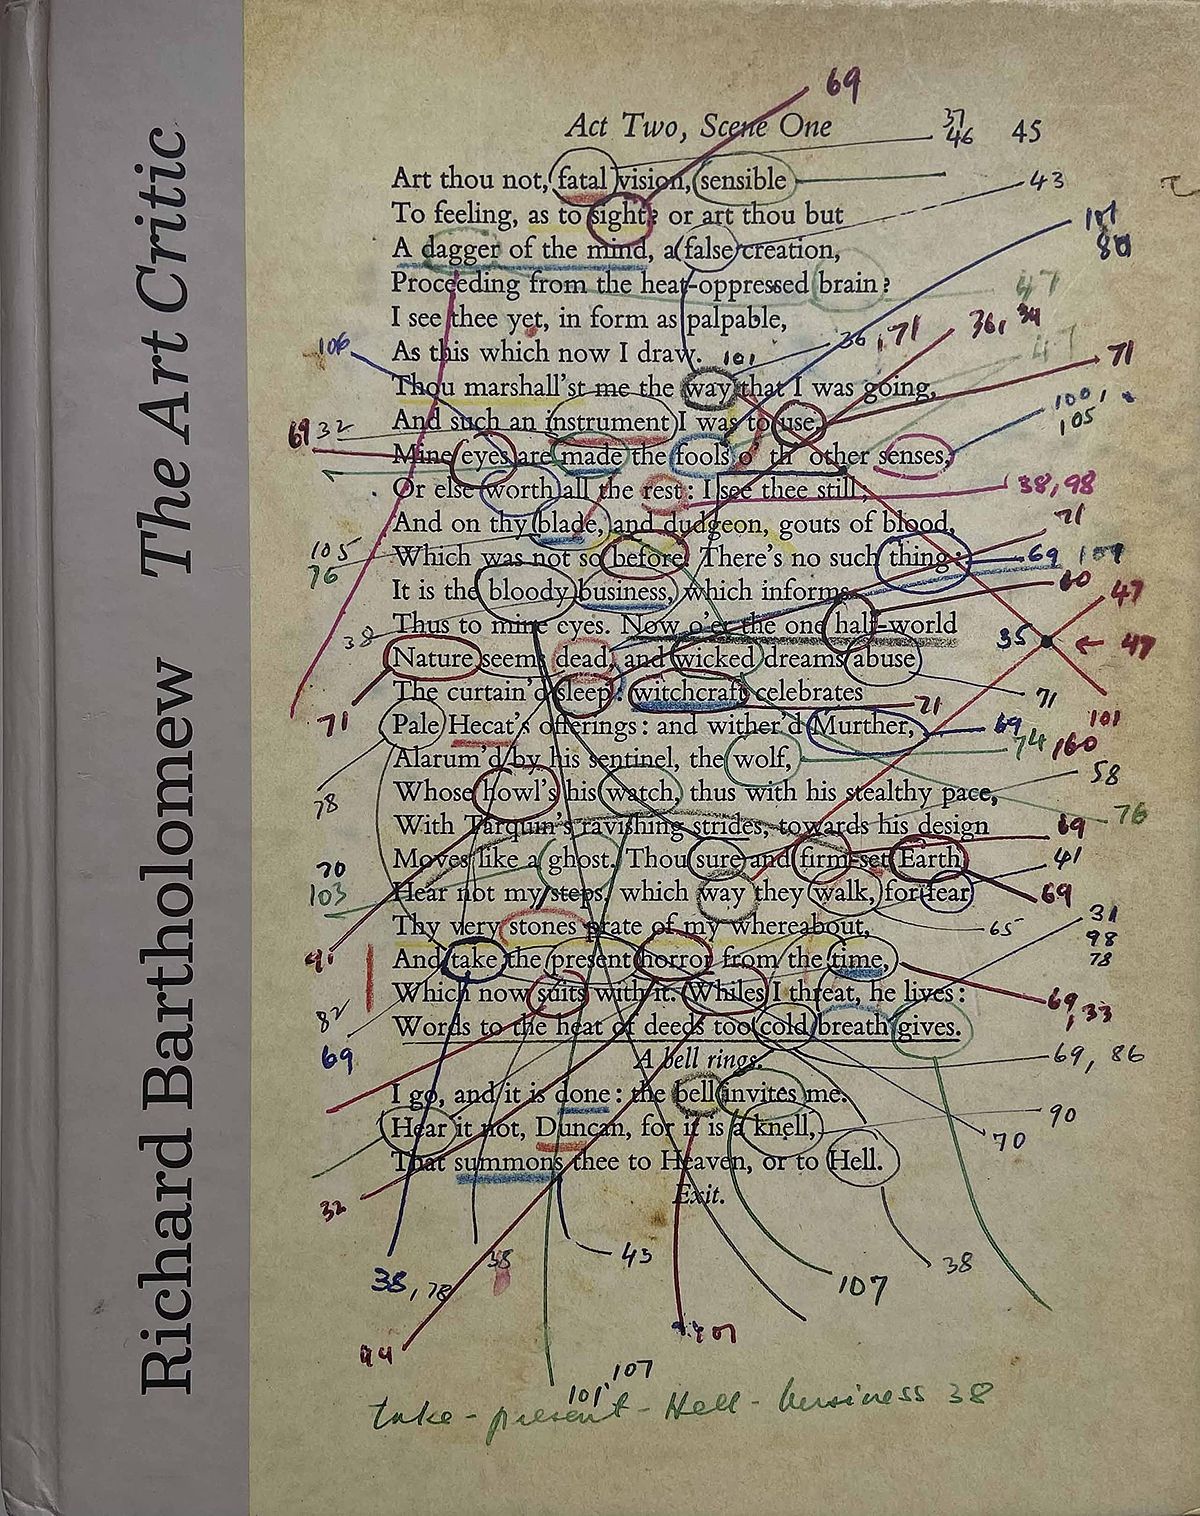 Richard Bartholomew The Art Critic
69
Act Two, Scene One 37 46 45
Art thou not, fatal vision, sensible 43
To feeling, as to sight? or art thou but 101
A dagger of the mind, a false creation,
Proceeding from the heat-oppressed brain? 47
I see thee yet, in form as palpable, 36, 34
106 As this which now I draw. 101 36, 71 71
Thou marshall'st me the way that I was going, 100,
69 32 And such an instrument I was to use, 105
Mine eyes are made the fools o' th' other senses,
Or else worth all the rest: I see thee still; 38, 98
And on thy blade, and dudgeon, gouts of blood, 71
105 Which was not so before. There's no such thing: 69 109
76 It is the bloody business, which informs 60 47
38 Thus to mine eyes. Now o'er the one half-world 35 ← 47
Nature seems dead, and wicked dreams abuse
The curtain'd sleep: witchcraft celebrates 71 71
71 Pale Hecat's offerings: and wither'd Murther, 69 101
Alarum'd by his sentinel, the wolf, 74 160
78 Whose howl's his watch, thus with his stealthy pace, 58
With Tarquin's ravishing strides, towards his design 69 76
70 Moves like a ghost. Thou sure and firm-set Earth 41
103 Hear not my steps, which way they walk, for fear 69
Thy very stones prate of my whereabout, 65 31
And take the present horror from the time, 98 78
82 Which now suits with it. Whiles I threat, he lives: 69, 33
69 Words to the heat of deeds too cold breath gives.
A bell rings. 69, 86
I go, and it is done: the bell invites me. 90
Hear it not, Duncan, for it is a knell, 70
That summons thee to Heaven, or to Hell.
32 Exit.
38, 78 38 43 107 38
44 101
101' 107
take - present - Hell - business 38